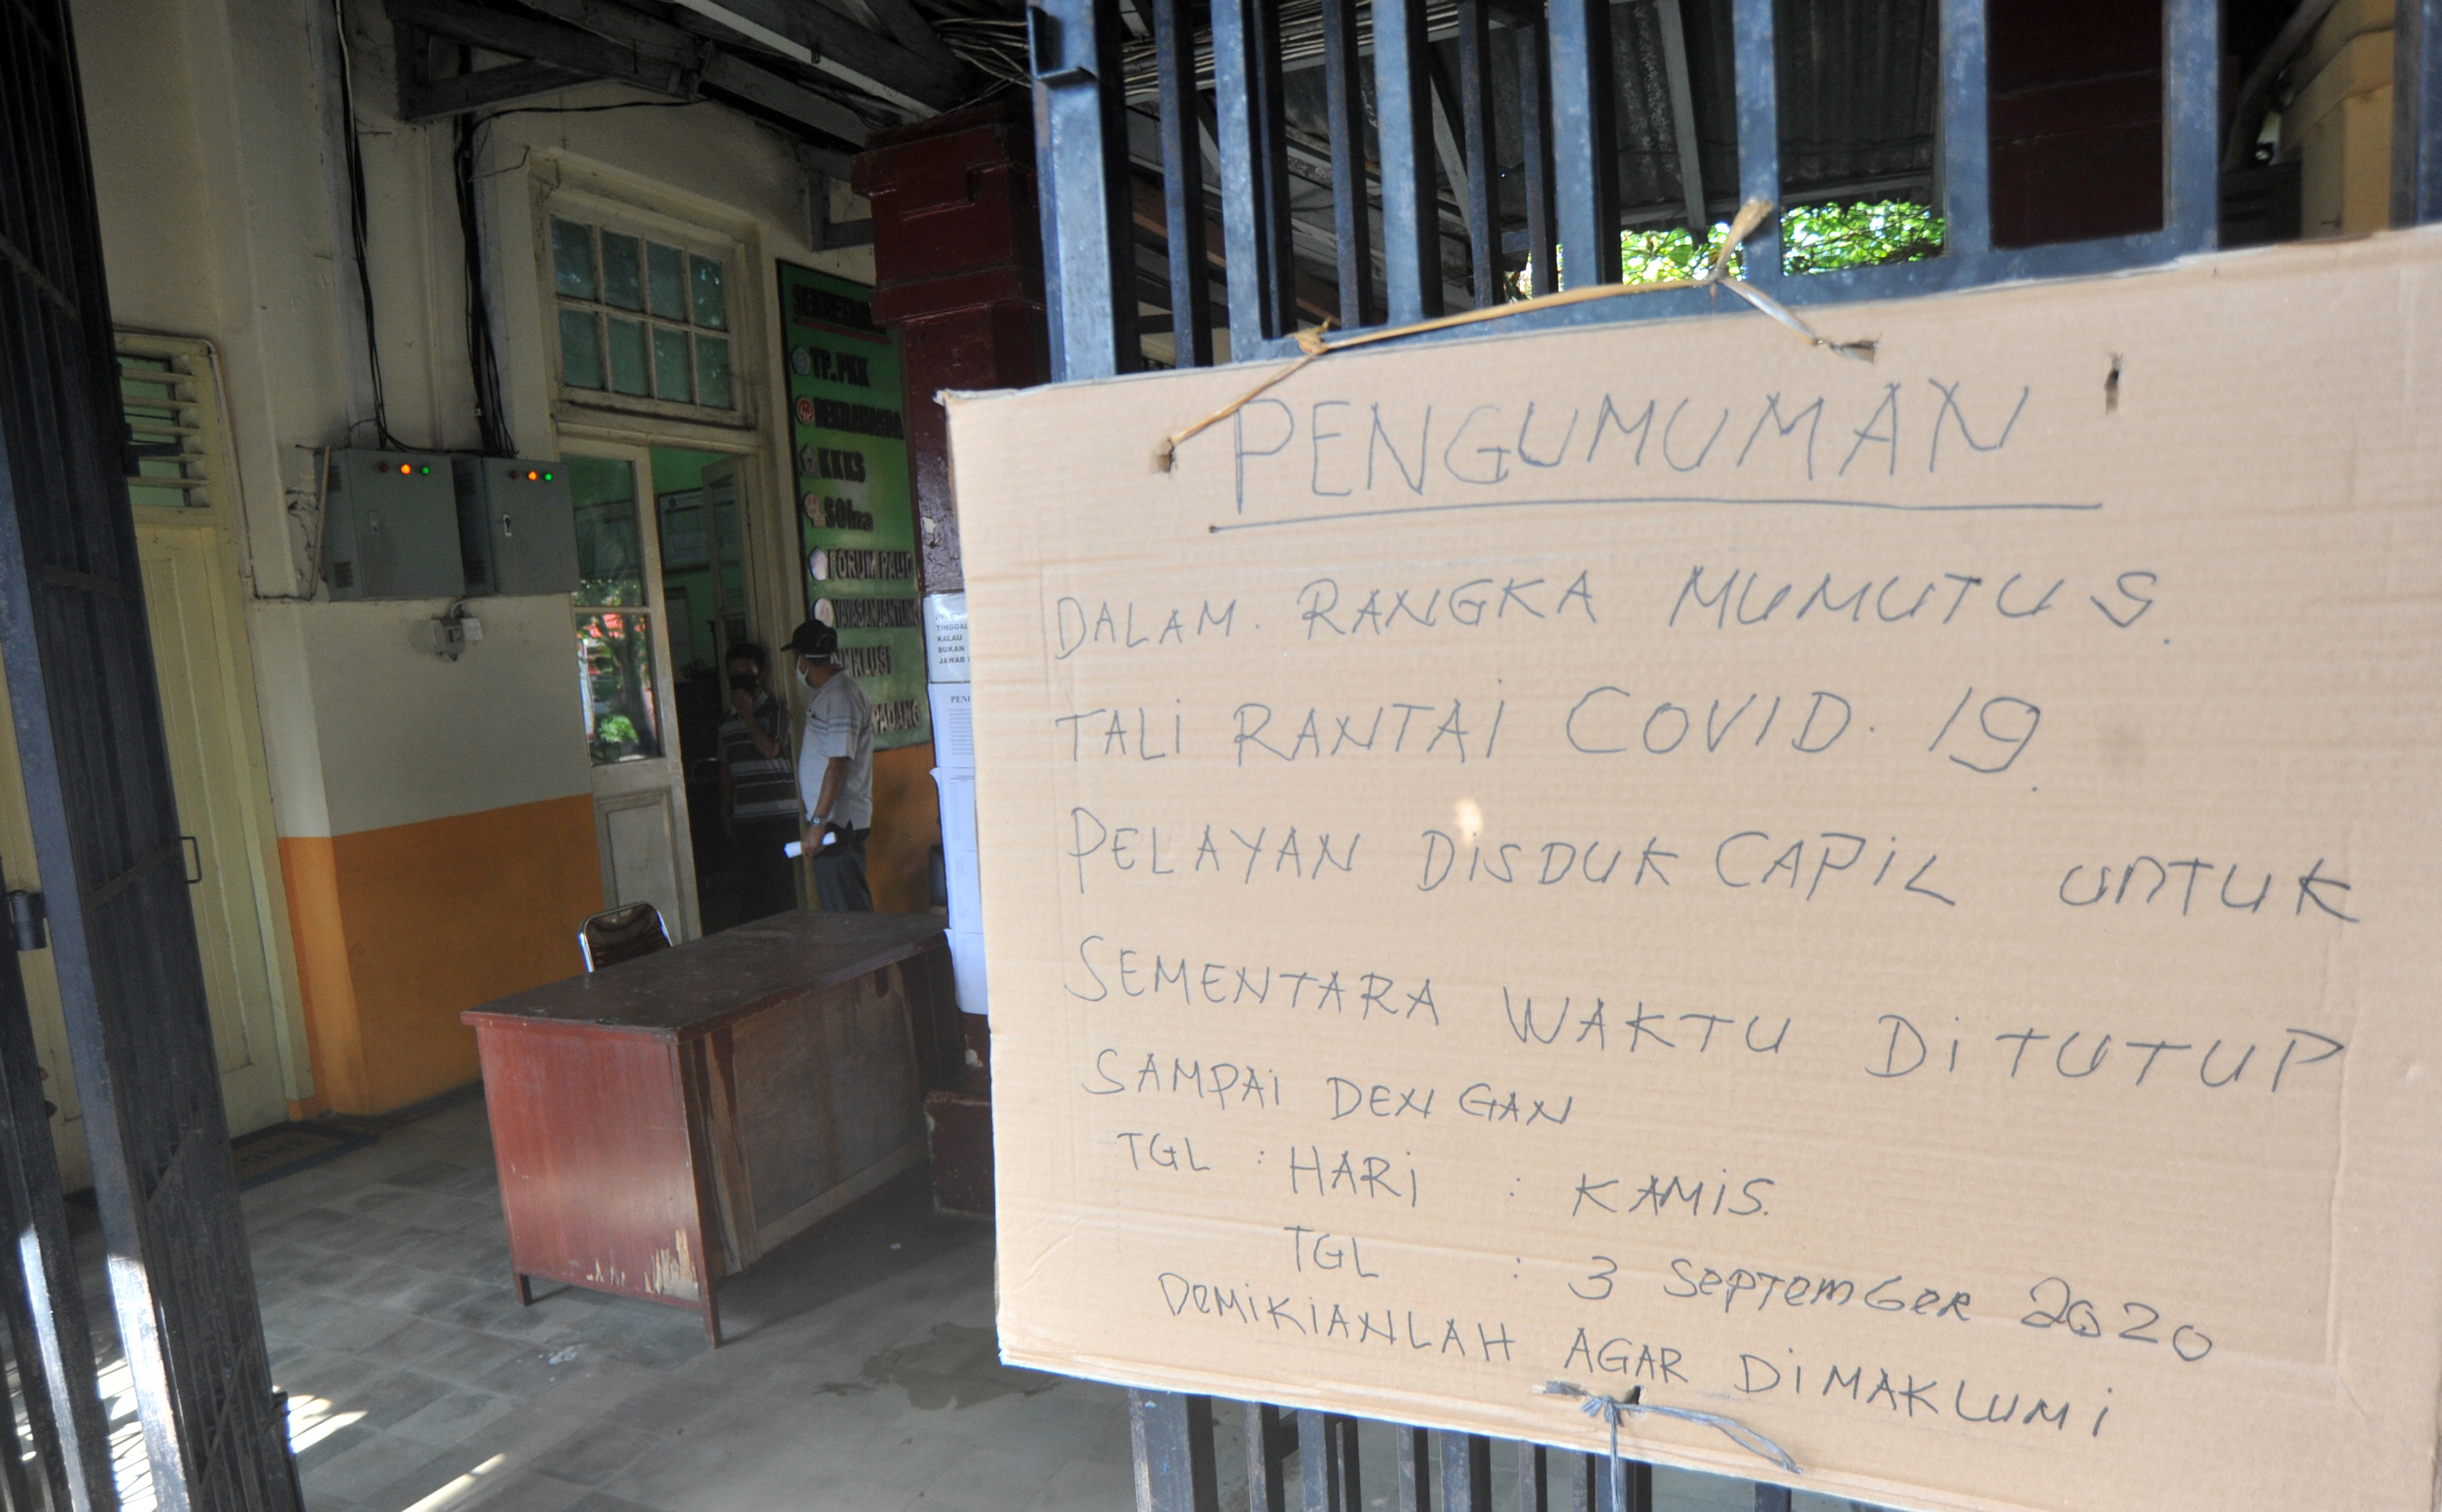 PENGUMUMAN
DALAM. RANGKA MUMUTUS.
TALI RANTAI COVID. 19.
PELAYAN DISDUK CAPIL UNTUK
SEMENTARA WAKTU DI TUTUP
SAMPAI DENGAN
TGL : HARI : KAMIS.
TGL : 3 SEPTEMBER 2020
DEMIKIANLAH AGAR DIMAKLUMI
TP.PKK
KKKS
SOIna
FORUM PAUD
INKLUSI
PADANG
TINGGAL
KALAU
BUKAN
JAWAB